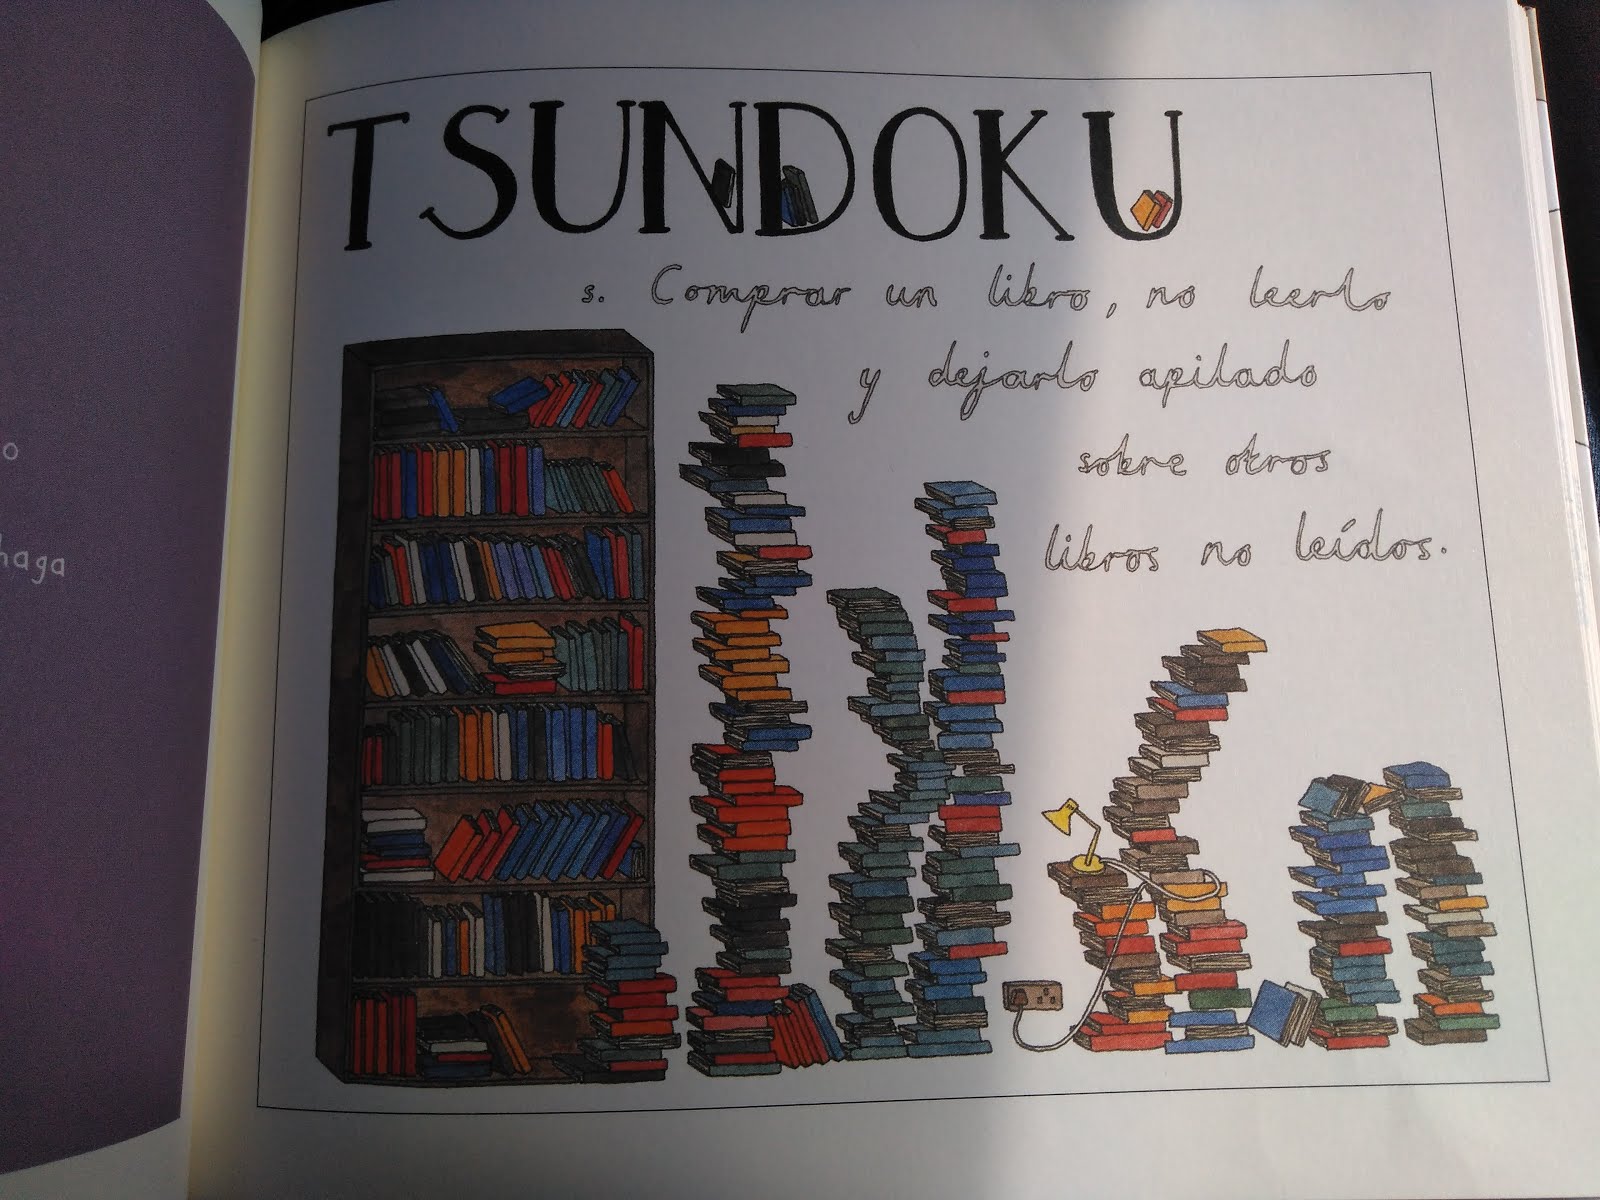 o
haga
TSUNDOKU
s. Comprar un libro, no leerlo
y dejarlo apilado
sobre otros
libros no leídos.